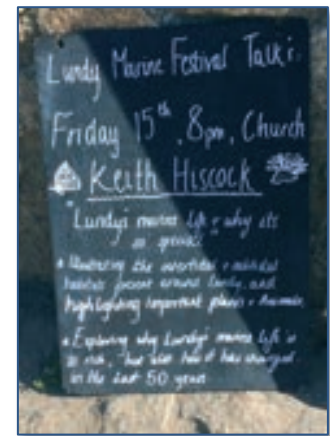 Lundy Marine Festival Talk:
Friday 15th, 8pm, Church
Keith Hiscock
"Lundy's marine life & why its
so special"
• Illustrating the intertidal & subtidal
habitats present around Lundy, and
highlighting important plants & animals.
• Exploring why Lundy's marine life is
so rich, but also how it has changed
in the last 50 years